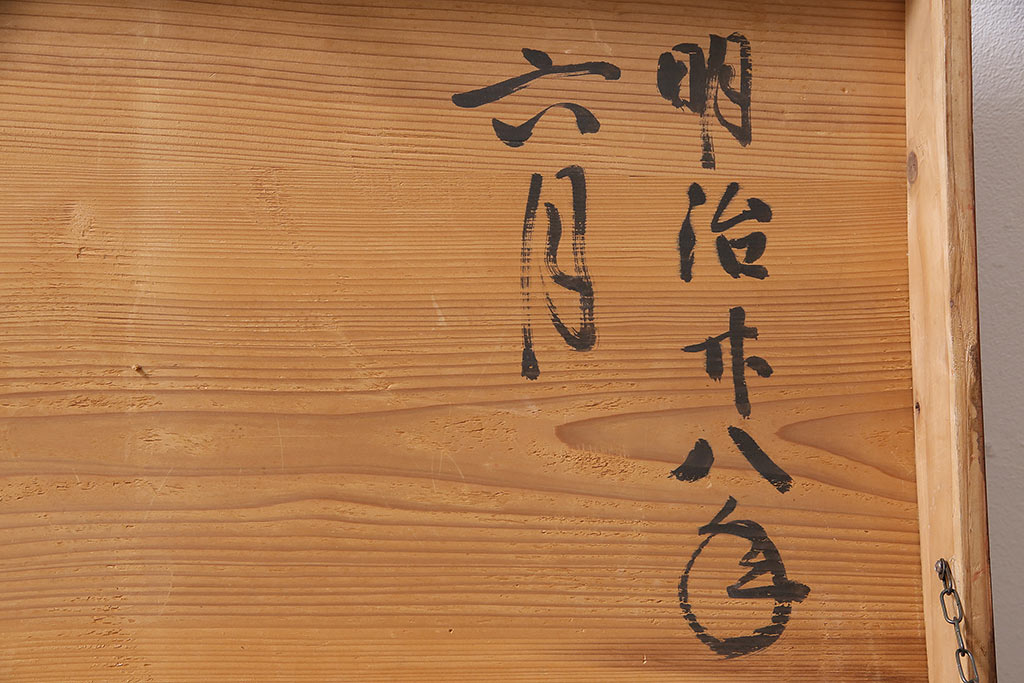 明治廿八年
六月